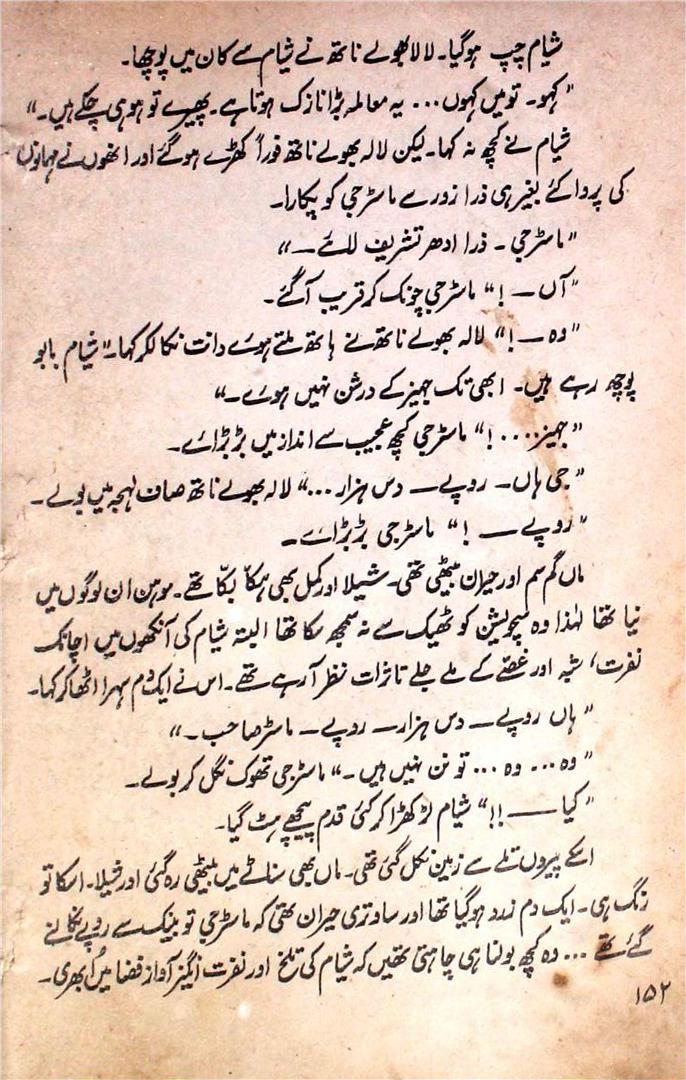 شیام چپ ہوگیا۔ لالا بھولے ناتھ نے شیام سے کان میں پوچھا۔
"کہو۔ تو میں کہوں... یہ معاملہ بڑا نازک ہوتا ہے۔ پھیرے تو ہو ہی چکے ہیں۔"
شیام نے کچھ نہ کہا۔ لیکن لالہ بھولے ناتھ فوراً کھڑے ہو گئے اور انھوں نے مہمانوں
کی پروا کئے بغیر ہی ذرا زور سے ماسٹر جی کو پکارا۔
"ماسٹر جی۔ ذرا ادھر تشریف لائے—"
"آں—!" ماسٹر جی چونک کر قریب آ گئے۔
"وہ—!" لالہ بھولے ناتھ نے ہاتھ ملتے ہوئے دانت نکال کر کہا۔ "شیام بابو
پوچھ رہے ہیں۔ ابھی تک جہیز کے درشن نہیں ہوئے۔"
"جہیز....!" ماسٹر جی کچھ عجیب سے انداز میں بڑبڑائے۔
"جی ہاں۔ روپے— دس ہزار..." لالہ بھولے ناتھ صاف لہجہ میں بولے۔
"روپے—!" ماسٹر جی بڑبڑائے۔
ماں گم سم اور حیران بیٹھی تھی۔ شیلا اور کمل بھی ہکا بکا تھے۔ موہن ان لوگوں میں
نیا تھا لہٰذا وہ سچویشن کو ٹھیک سے نہ سمجھ سکا تھا البتہ شیام کی آنکھوں میں اچانک
نفرت، شبہ اور غصے کے ملے جلے تاثرات نظر آ رہے تھے۔ اس نے ایک دم سہرا اٹھا کر کہا۔
"ہاں روپے— دس ہزار— روپے— ماسٹر صاحب۔"
"وہ... وہ... تو نن نہیں ہیں۔" ماسٹر جی تھوک نگل کر بولے۔
"کیا——!!" شیام لڑکھڑا کر کئی قدم پیچھے ہٹ گیا۔
اسکے پیروں تلے سے زمین نکل گئی تھی۔ ماں بھی سناٹے میں بیٹھی رہ گئی اور شیلا۔ اسکا تو
رنگ ہی۔ ایک دم زرد ہو گیا تھا اور ساوتری حیران تھی کہ ماسٹر جی تو بینک سے روپے نکالنے
گئے تھے... وہ کچھ بولنا ہی چاہتی تھیں کہ شیام کی تلخ اور نفرت انگیز آواز فضا میں اُبھری۔
۱۵۲